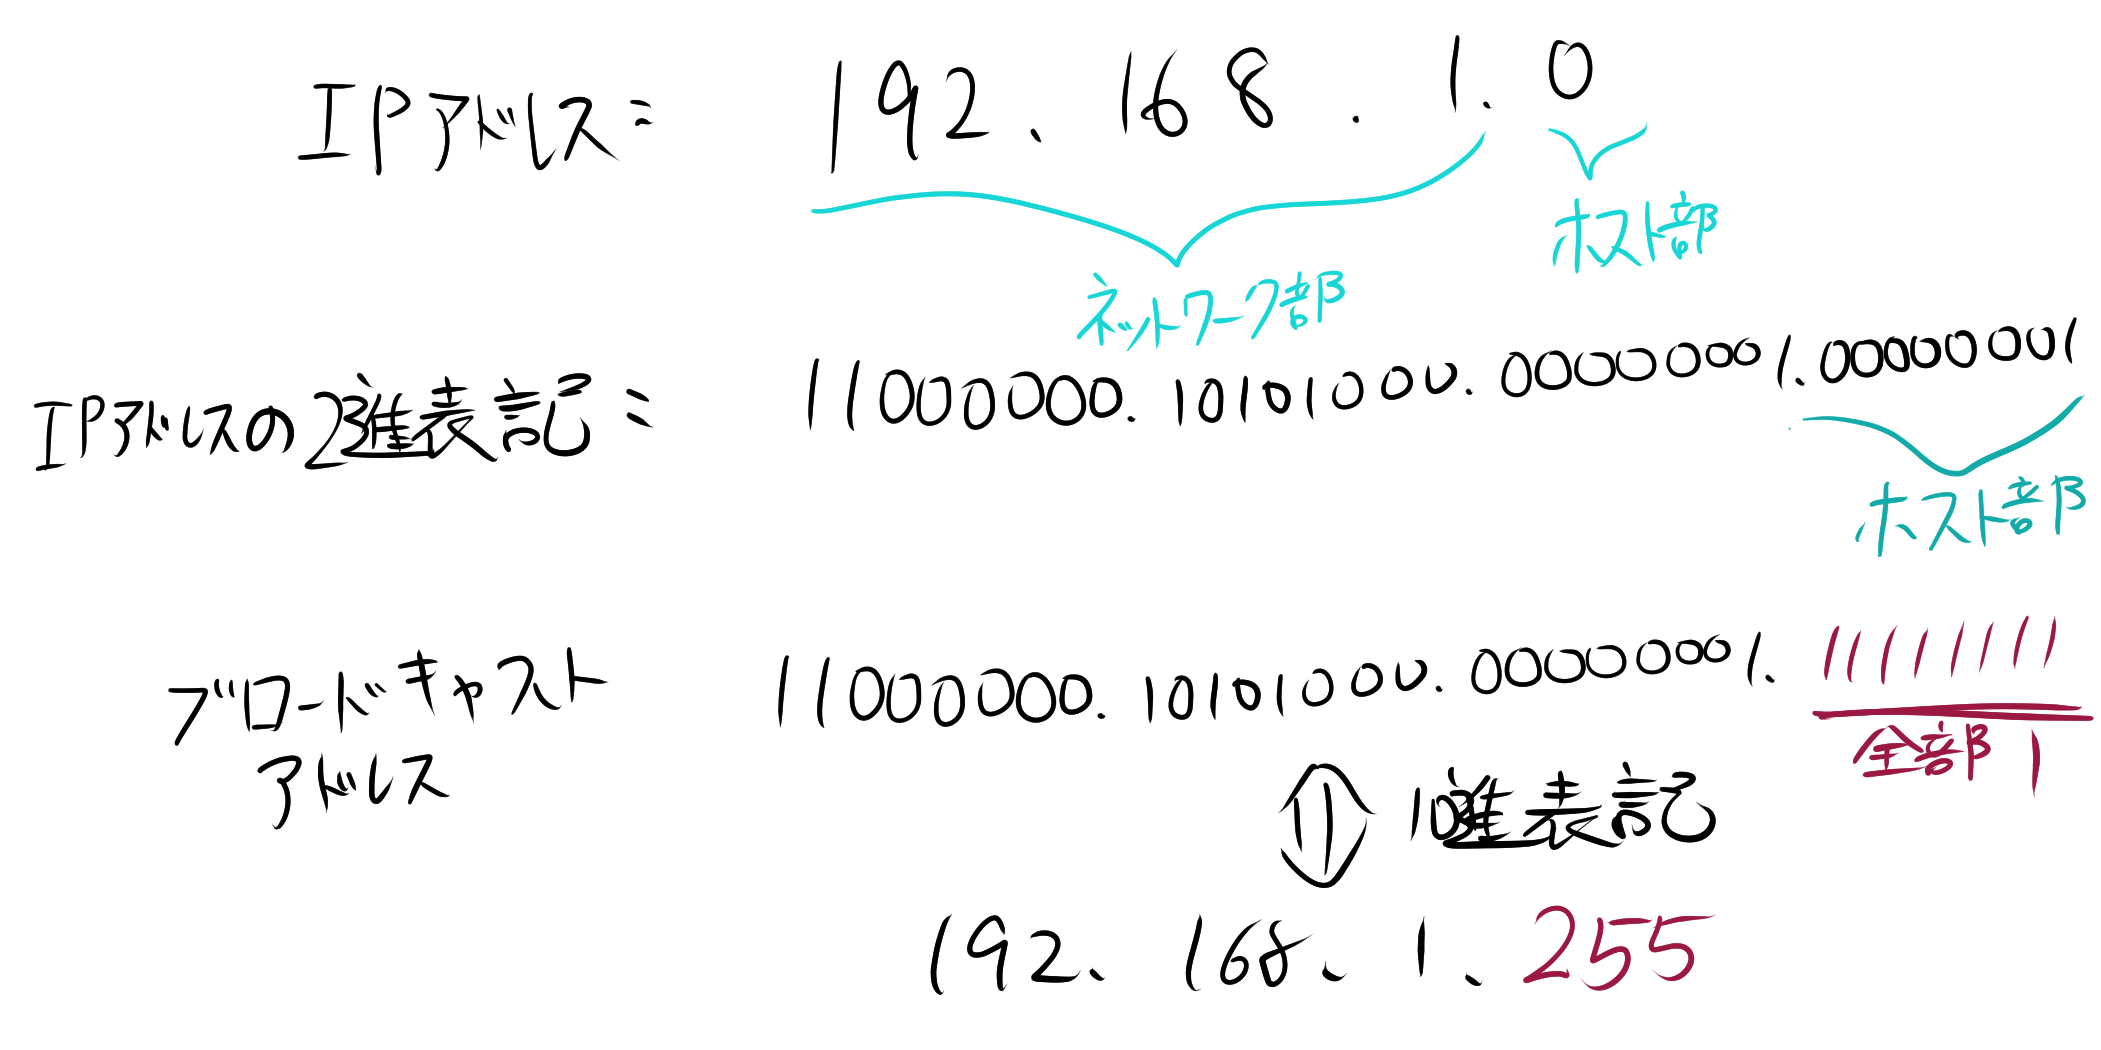 IPアドレス= 192. 168. 1. 0
ホスト部
ネットワーク部
IPアドレスの2進表記= 11000000. 10101000. 00000001. 00000001
ホスト部
ブロードキャスト 11000000. 10101000. 00000001. 11111111
アドレス
全部1
10進表記
192. 168. 1. 255